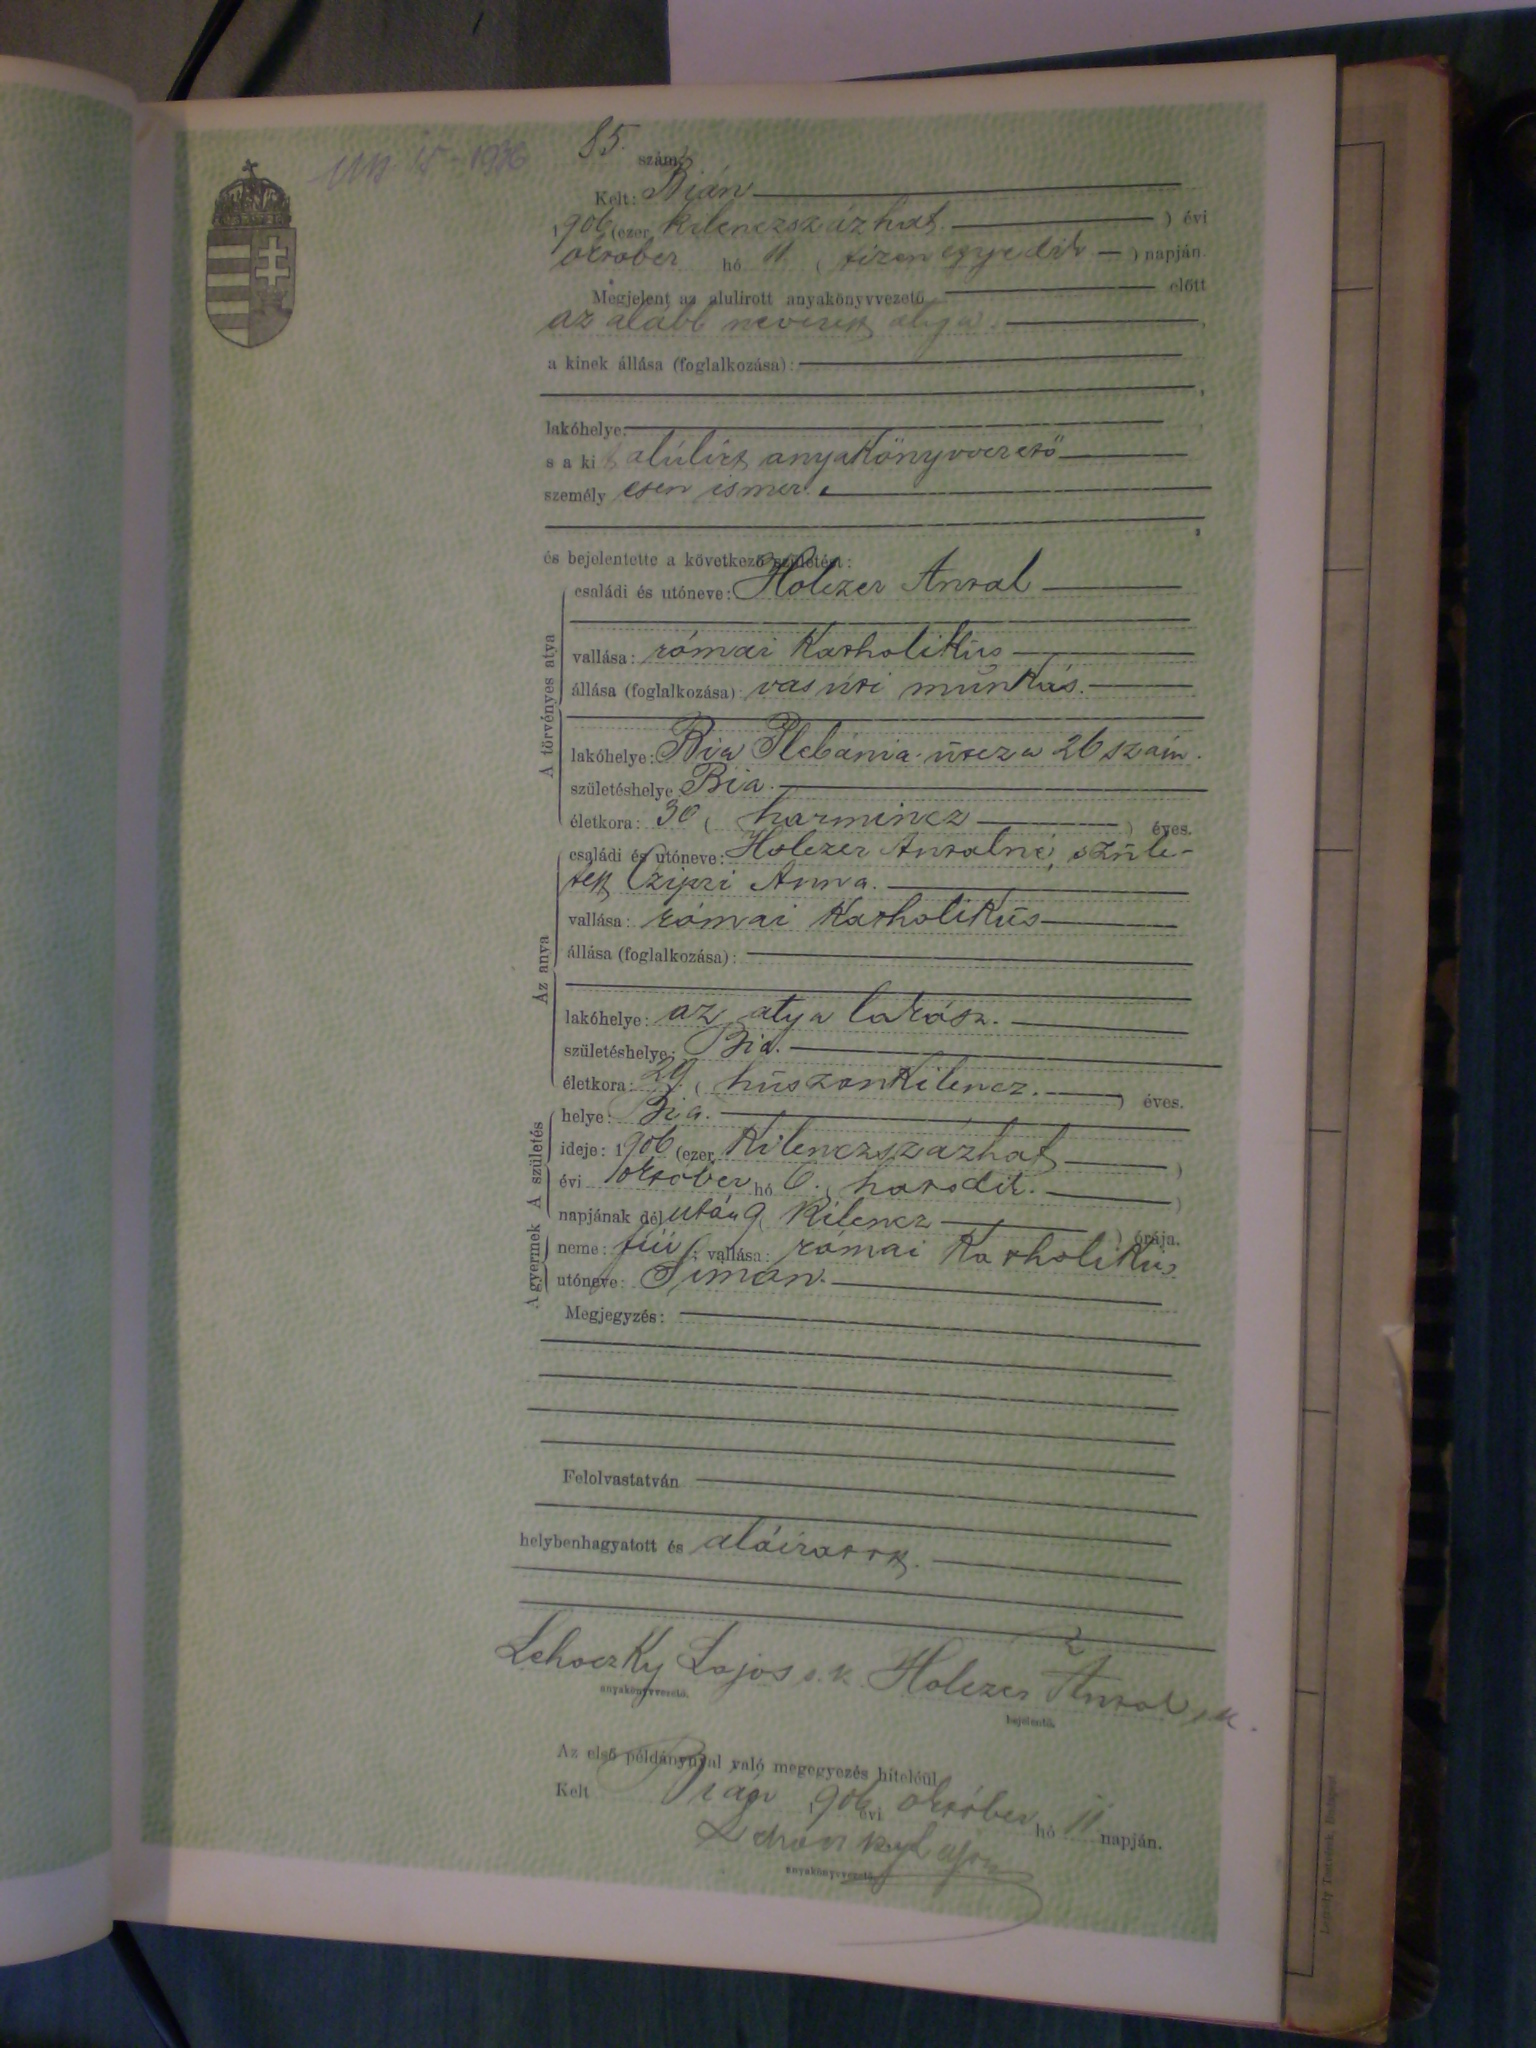 85. szám.
Kelt: Bián
1906 (ezer kilenczszázhat. ) évi
október hó 11 ( tizenegyedik ) napján.
Megjelent az alulirott anyakönyvvezető előtt
az alább nevezett atya.
a kinek állása (foglalkozása):
lakóhelye:
s a kit alúlírt anyakönyvvezető
személyesen ismer.
és bejelentette a következő születést:
A törvényes atya
családi és utóneve: Holczer Antal
vallása: római katholikús
állása (foglalkozása): vasúti múnkás.
lakóhelye: Bia Plébánia-útcza 26 szám.
születéshelye: Bia.
életkora: 30 ( harmincz ) éves.
Az anya
családi és utóneve: Holczer Antalné, szüle-
tett Czipri Anna.
vallása: római katholikús
állása (foglalkozása):
lakóhelye: az atya lakása.
születéshelye: Bia.
életkora: 29. ( húszonkilencz. ) éves.
A születés
helye: Bia.
ideje: 1906 (ezer kilenczszázhat )
évi október hó 6. ( hatodik. )
napjának délután 9 ( kilencz ) órája.
A gyermek
neme: fiú; vallása: római katholikús
utóneve: Simon.
Megjegyzés:
Felolvastatván
helybenhagyatott és aláíratott.
Lehoczky Lajos s. k. Holczer Antal s. k.
anyakönyvvezető. bejelentő.
Az első példánynyal való megegyezés hiteléül
Kelt Bián 1906 évi október hó 11 napján.
Lehoczky Lajos
anyakönyvvezető.